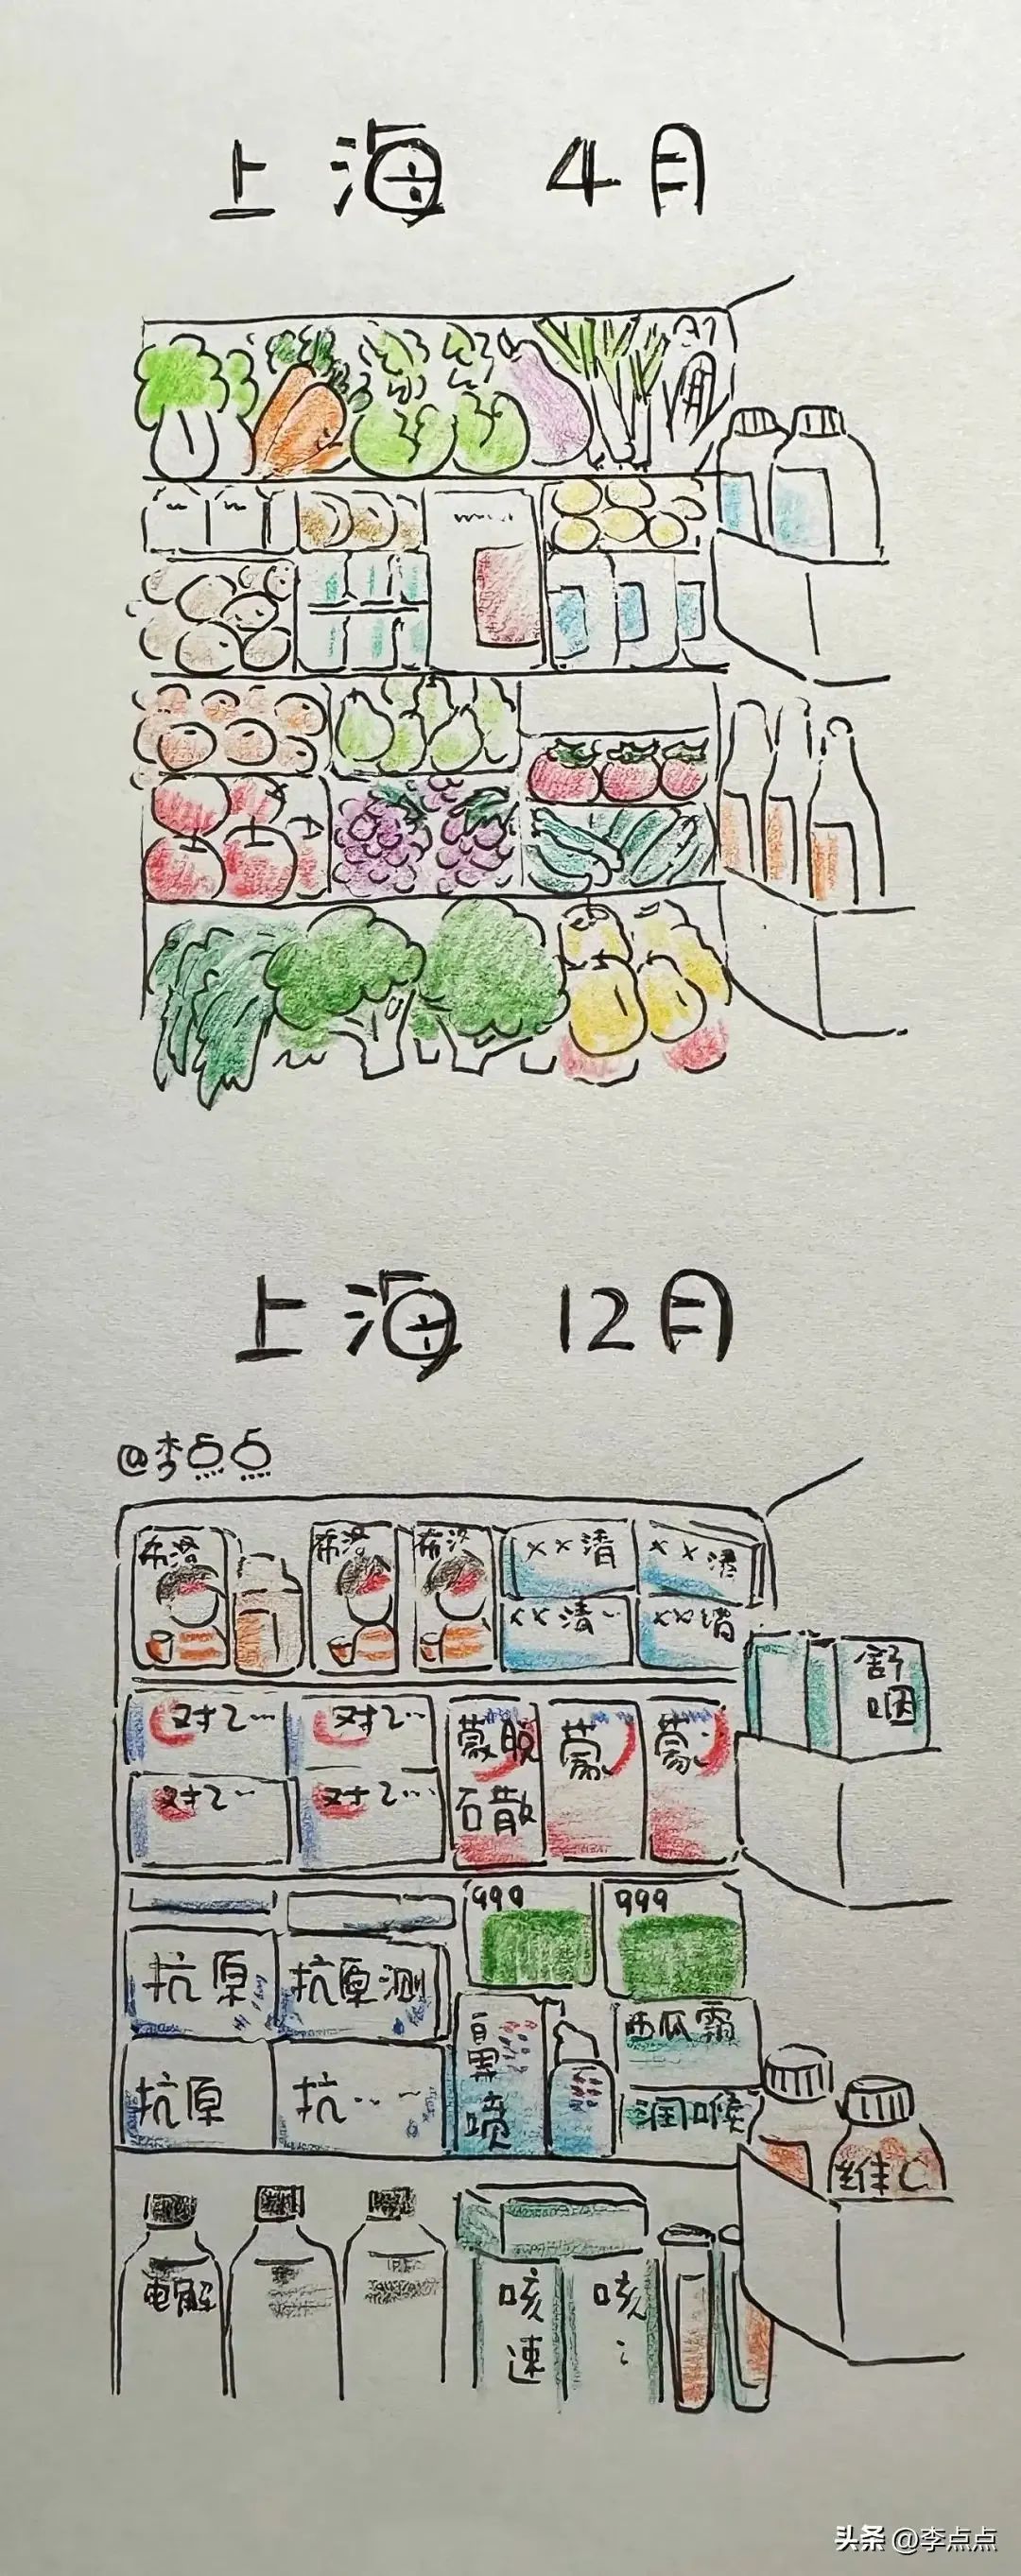 上海 4月
上海 12月
@李点点
希洛 希洛 希洛 ××清 ××清
××清… ××清
舒
咽
对乙… 对乙…
对乙… 对乙…
蒙脱
石散
蒙
蒙
999 999
抗原 抗原测
抗原 抗…
鼻
喷
西瓜霜
润喉
维C
电解
咳
速
咳
头条 @李点点